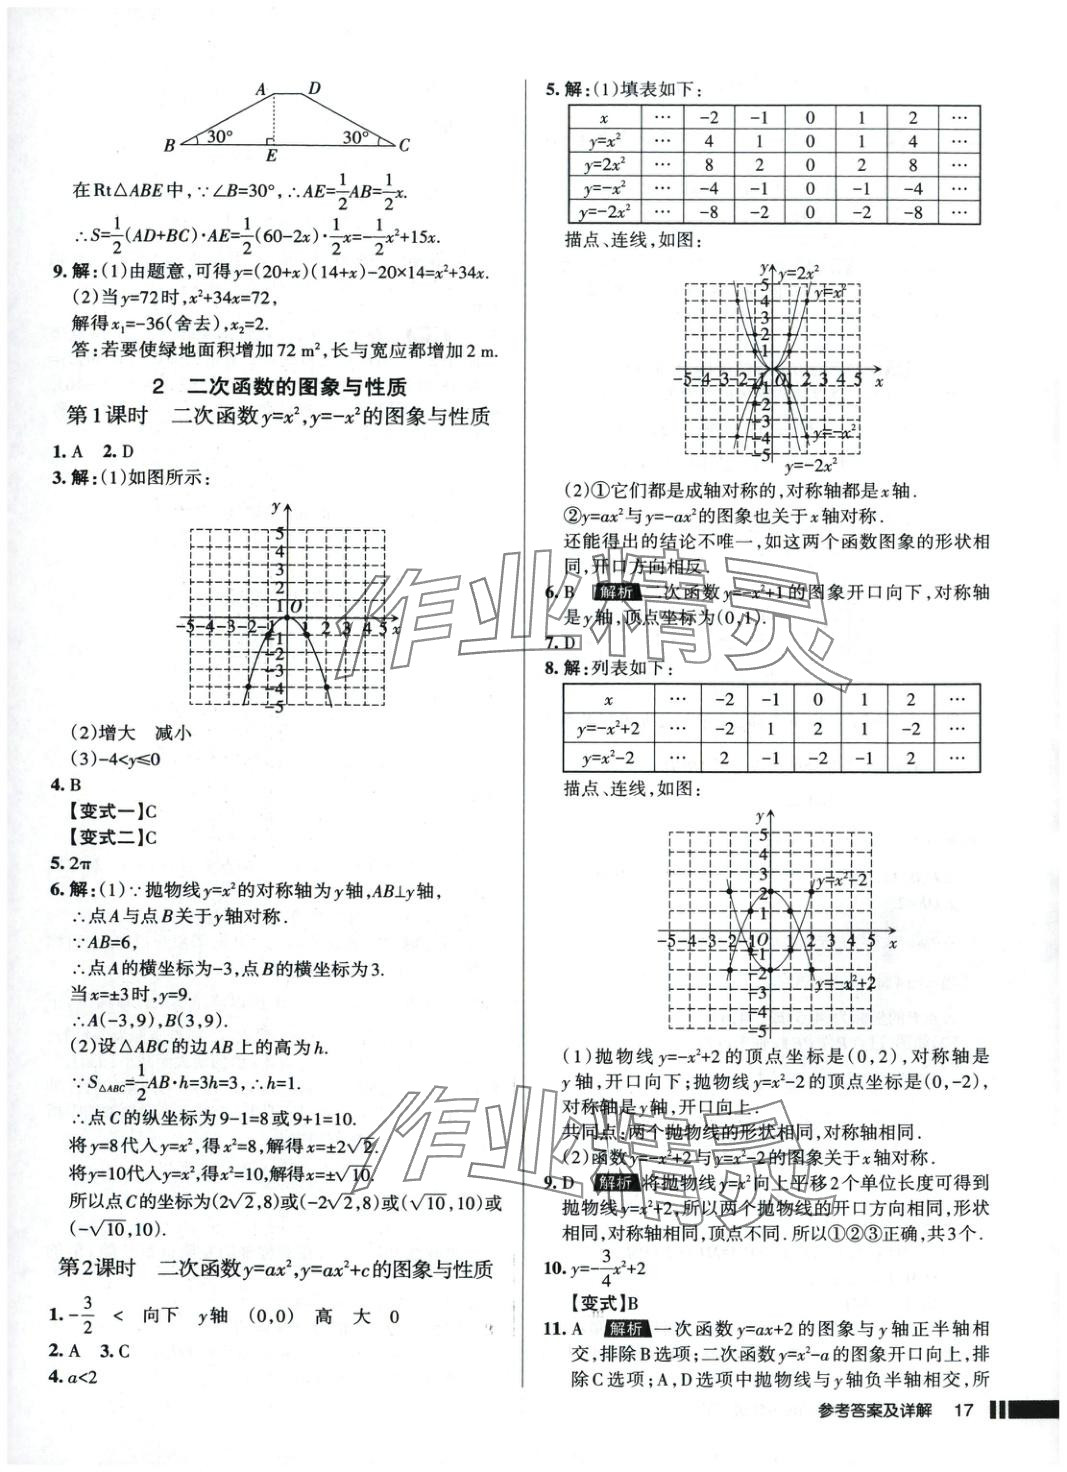 A D
B 30° 30° C
E
在Rt△ABE中,∵∠B=30°,∴AE=1/2AB=1/2x.
∴S=1/2(AD+BC)·AE=1/2(60-2x)·1/2x=-1/2x²+15x.
9.解:(1)由题意,可得y=(20+x)(14+x)-20×14=x²+34x.
(2)当y=72时,x²+34x=72,
解得x₁=-36(舍去),x₂=2.
答:若要使绿地面积增加72 m²,长与宽应都增加2 m.
2 二次函数的图象与性质
第1课时 二次函数y=x²,y=-x²的图象与性质
1.A 2.D
3.解:(1)如图所示:
y
5
4
3
2
1 O
-5-4-3-2-1 1 2 3 4 5 x
-1
-2
-3
-4
-5
(2)增大 减小
(3)-4<y≤0
4.B
【变式一】C
【变式二】C
5.2π
6.解:(1)∵抛物线y=x²的对称轴为y轴,AB⊥y轴,
∴点A与点B关于y轴对称.
∵AB=6,
∴点A的横坐标为-3,点B的横坐标为3.
当x=±3时,y=9.
∴A(-3,9),B(3,9).
(2)设△ABC的边AB上的高为h.
∵S△ABC=1/2AB·h=3h=3,∴h=1.
∴点C的纵坐标为9-1=8或9+1=10.
将y=8代入y=x²,得x²=8,解得x=±2√2.
将y=10代入y=x²,得x²=10,解得x=±√10.
所以点C的坐标为(2√2,8)或(-2√2,8)或(√10,10)或
(-√10,10).
第2课时 二次函数y=ax²,y=ax²+c的图象与性质
1.-3/2 < 向下 y轴 (0,0) 高 大 0
2.A 3.C
4.a<2
5.解:(1)填表如下:
x … -2 -1 0 1 2 …
y=x² … 4 1 0 1 4 …
y=2x² … 8 2 0 2 8 …
y=-x² … -4 -1 0 -1 -4 …
y=-2x² … -8 -2 0 -2 -8 …
描点、连线,如图:
y y=2x²
5
4 y=x²
3
2
1
-5-4-3-2-1 O 1 2 3 4 5 x
-1
-2
-3
-4 y=-x²
-5
y=-2x²
(2)①它们都是成轴对称的,对称轴都是x轴.
②y=ax²与y=-ax²的图象也关于x轴对称.
还能得出的结论不唯一,如这两个函数图象的形状相
同,开口方向相反.
6.B 解析 二次函数y=-x²+1的图象开口向下,对称轴
是y轴,顶点坐标为(0,1).
7.D
8.解:列表如下:
x … -2 -1 0 1 2 …
y=-x²+2 … -2 1 2 1 -2 …
y=x²-2 … 2 -1 -2 -1 2 …
描点、连线,如图:
y
5
4
3
2 y=x²-2
1
-5-4-3-2-1 O 1 2 3 4 5 x
-1
-2 y=-x²+2
-3
-4
-5
(1)抛物线y=-x²+2的顶点坐标是(0,2),对称轴是
y轴,开口向下;抛物线y=x²-2的顶点坐标是(0,-2),
对称轴是y轴,开口向上.
共同点:两个抛物线的形状相同,对称轴相同.
(2)函数y=-x²+2与y=x²-2的图象关于x轴对称.
9.D 解析 将抛物线y=x²向上平移2个单位长度可得到
抛物线y=x²+2,所以两个抛物线的开口方向相同,形状
相同,对称轴相同,顶点不同.所以①②③正确,共3个.
10.y=-3/4x²+2
【变式】B
11.A 解析 一次函数y=ax+2的图象与y轴正半轴相
交,排除B选项;二次函数y=x²-a的图象开口向上,排
除C选项;A,D选项中抛物线与y轴负半轴相交,所
参考答案及详解 17
作业精灵
作业精灵